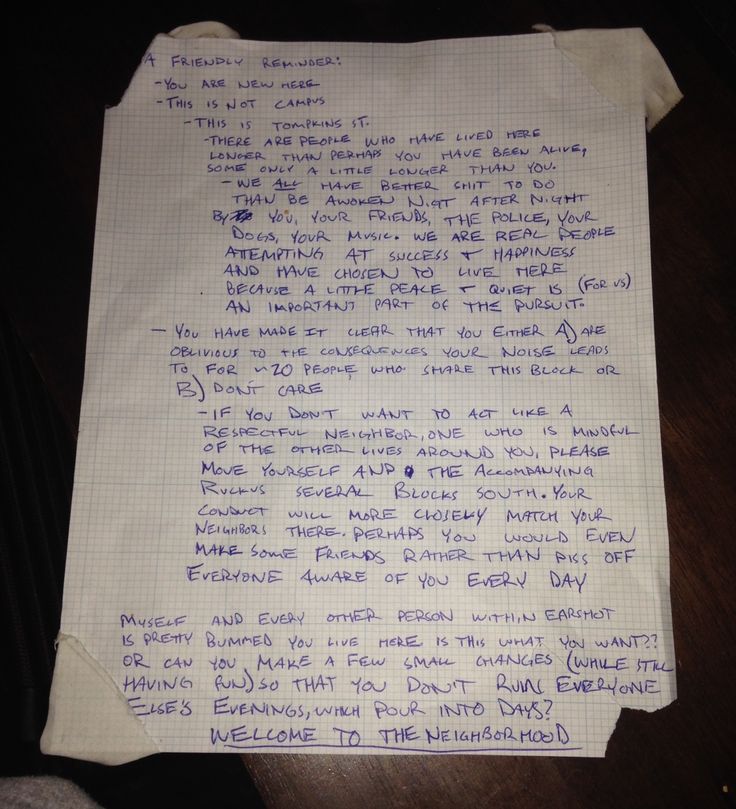 A FRIENDLY REMINDER:
- YOU ARE NEW HERE
- THIS IS NOT CAMPUS
- THIS IS TOMPKINS ST.
- THERE ARE PEOPLE WHO HAVE LIVED HERE
LONGER THAN PERHAPS YOU HAVE BEEN ALIVE,
SOME ONLY A LITTLE LONGER THAN YOU.
- WE ALL HAVE BETTER SHIT TO DO
THAN BE AWOKEN NIGT AFTER NIGHT
BY YOU, YOUR FRIENDS, THE POLICE, YOUR
DOGS, YOUR MUSIC. WE ARE REAL PEOPLE
ATTEMPTING AT SUCCESS + HAPPINESS
AND HAVE CHOSEN TO LIVE HERE
BECAUSE A LITTLE PEACE + QUIET IS (FOR US)
AN IMPORTANT PART OF THE PURSUIT.
- YOU HAVE MADE IT CLEAR THAT YOU EITHER A) ARE
OBLIVIOUS TO THE CONSEQUENCES YOUR NOISE LEADS
TO, FOR ~20 PEOPLE, WHO SHARE THIS BLOCK OR
B) DON'T CARE
- IF YOU DON'T WANT TO ACT LIKE A
RESPECTFUL NEIGHBOR, ONE WHO IS MINDFUL
OF THE OTHER LIVES AROUND YOU, PLEASE
MOVE YOURSELF AND THE ACCOMPANYING
RUCKUS SEVERAL BLOCKS SOUTH. YOUR
CONDUCT WILL MORE CLOSELY MATCH YOUR
NEIGHBORS THERE. PERHAPS YOU WOULD EVEN
MAKE SOME FRIENDS RATHER THAN PISS OFF
EVERYONE AWARE OF YOU EVERY DAY
MYSELF AND EVERY OTHER PERSON WITHIN EARSHOT
IS PRETTY BUMMED YOU LIVE HERE IS THIS WHAT YOU WANT??
OR CAN YOU MAKE A FEW SMALL CHANGES (WHILE STILL
HAVING FUN) SO THAT YOU DON'T RUIN EVERYONE
ELSE'S EVENINGS, WHICH POUR INTO DAYS?
WELCOME TO THE NEIGHBORHOOD